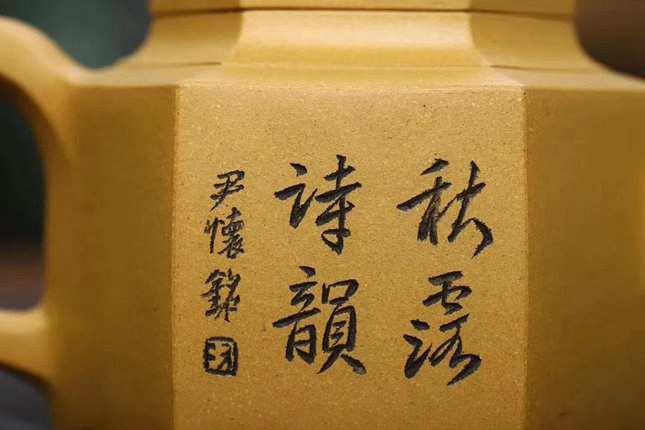 秋露
詩韻
尹懷